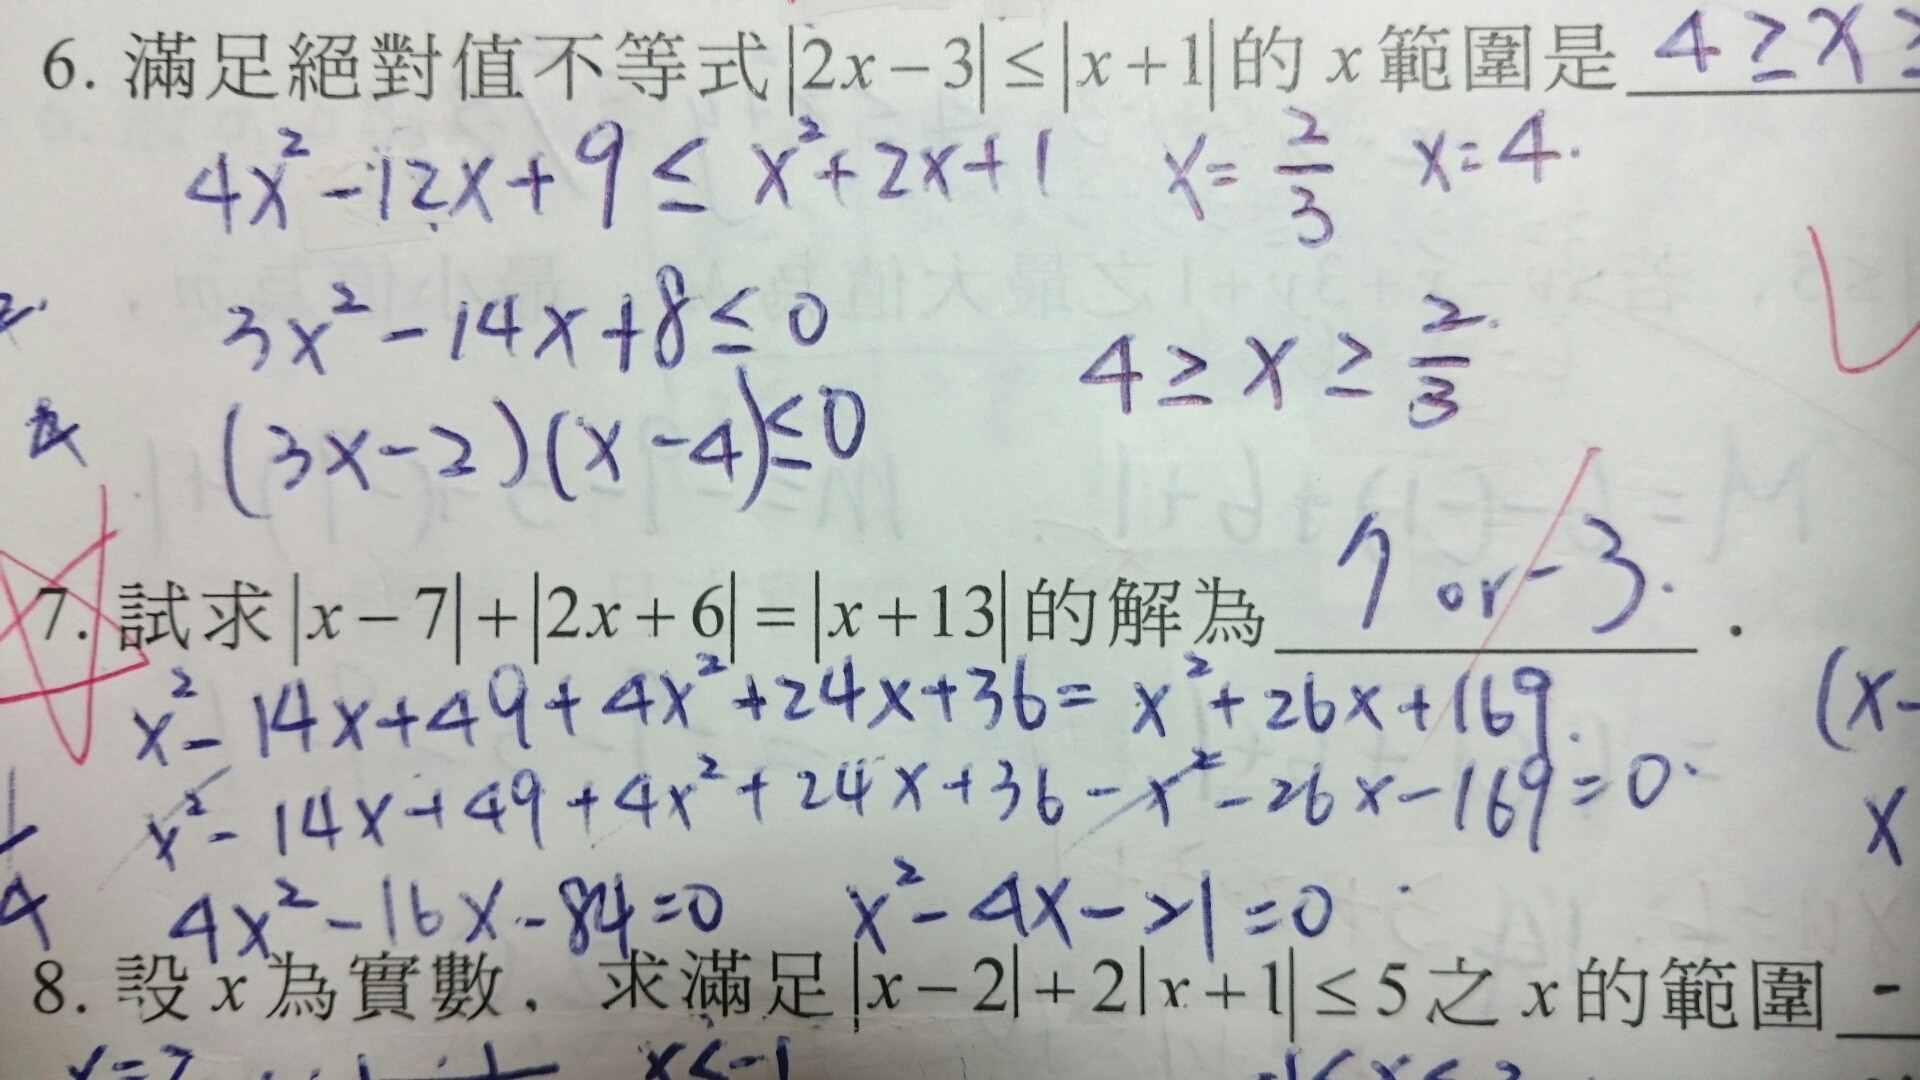 6. 滿足絕對值不等式|2x−3|≤|x+1|的 x 範圍是 4≥x≥
4x²-12x+9≤x²+2x+1 x=2/3 x=4.
3x²-14x+8≤0 4≥x≥2/3
(3x-2)(x-4)≤0
7. 試求|x−7|+|2x+6|=|x+13|的解為 7 or -3.
x²-14x+49+4x²+24x+36=x²+26x+169. (x-
x²-14x+49+4x²+24x+36-x²-26x-169=0. x
4x²-16x-84=0 x²-4x-21=0
8. 設 x 為實數, 求滿足|x−2|+2|x+1|≤5之 x 的範圍 -
x=2 x<-1 -1<x<2